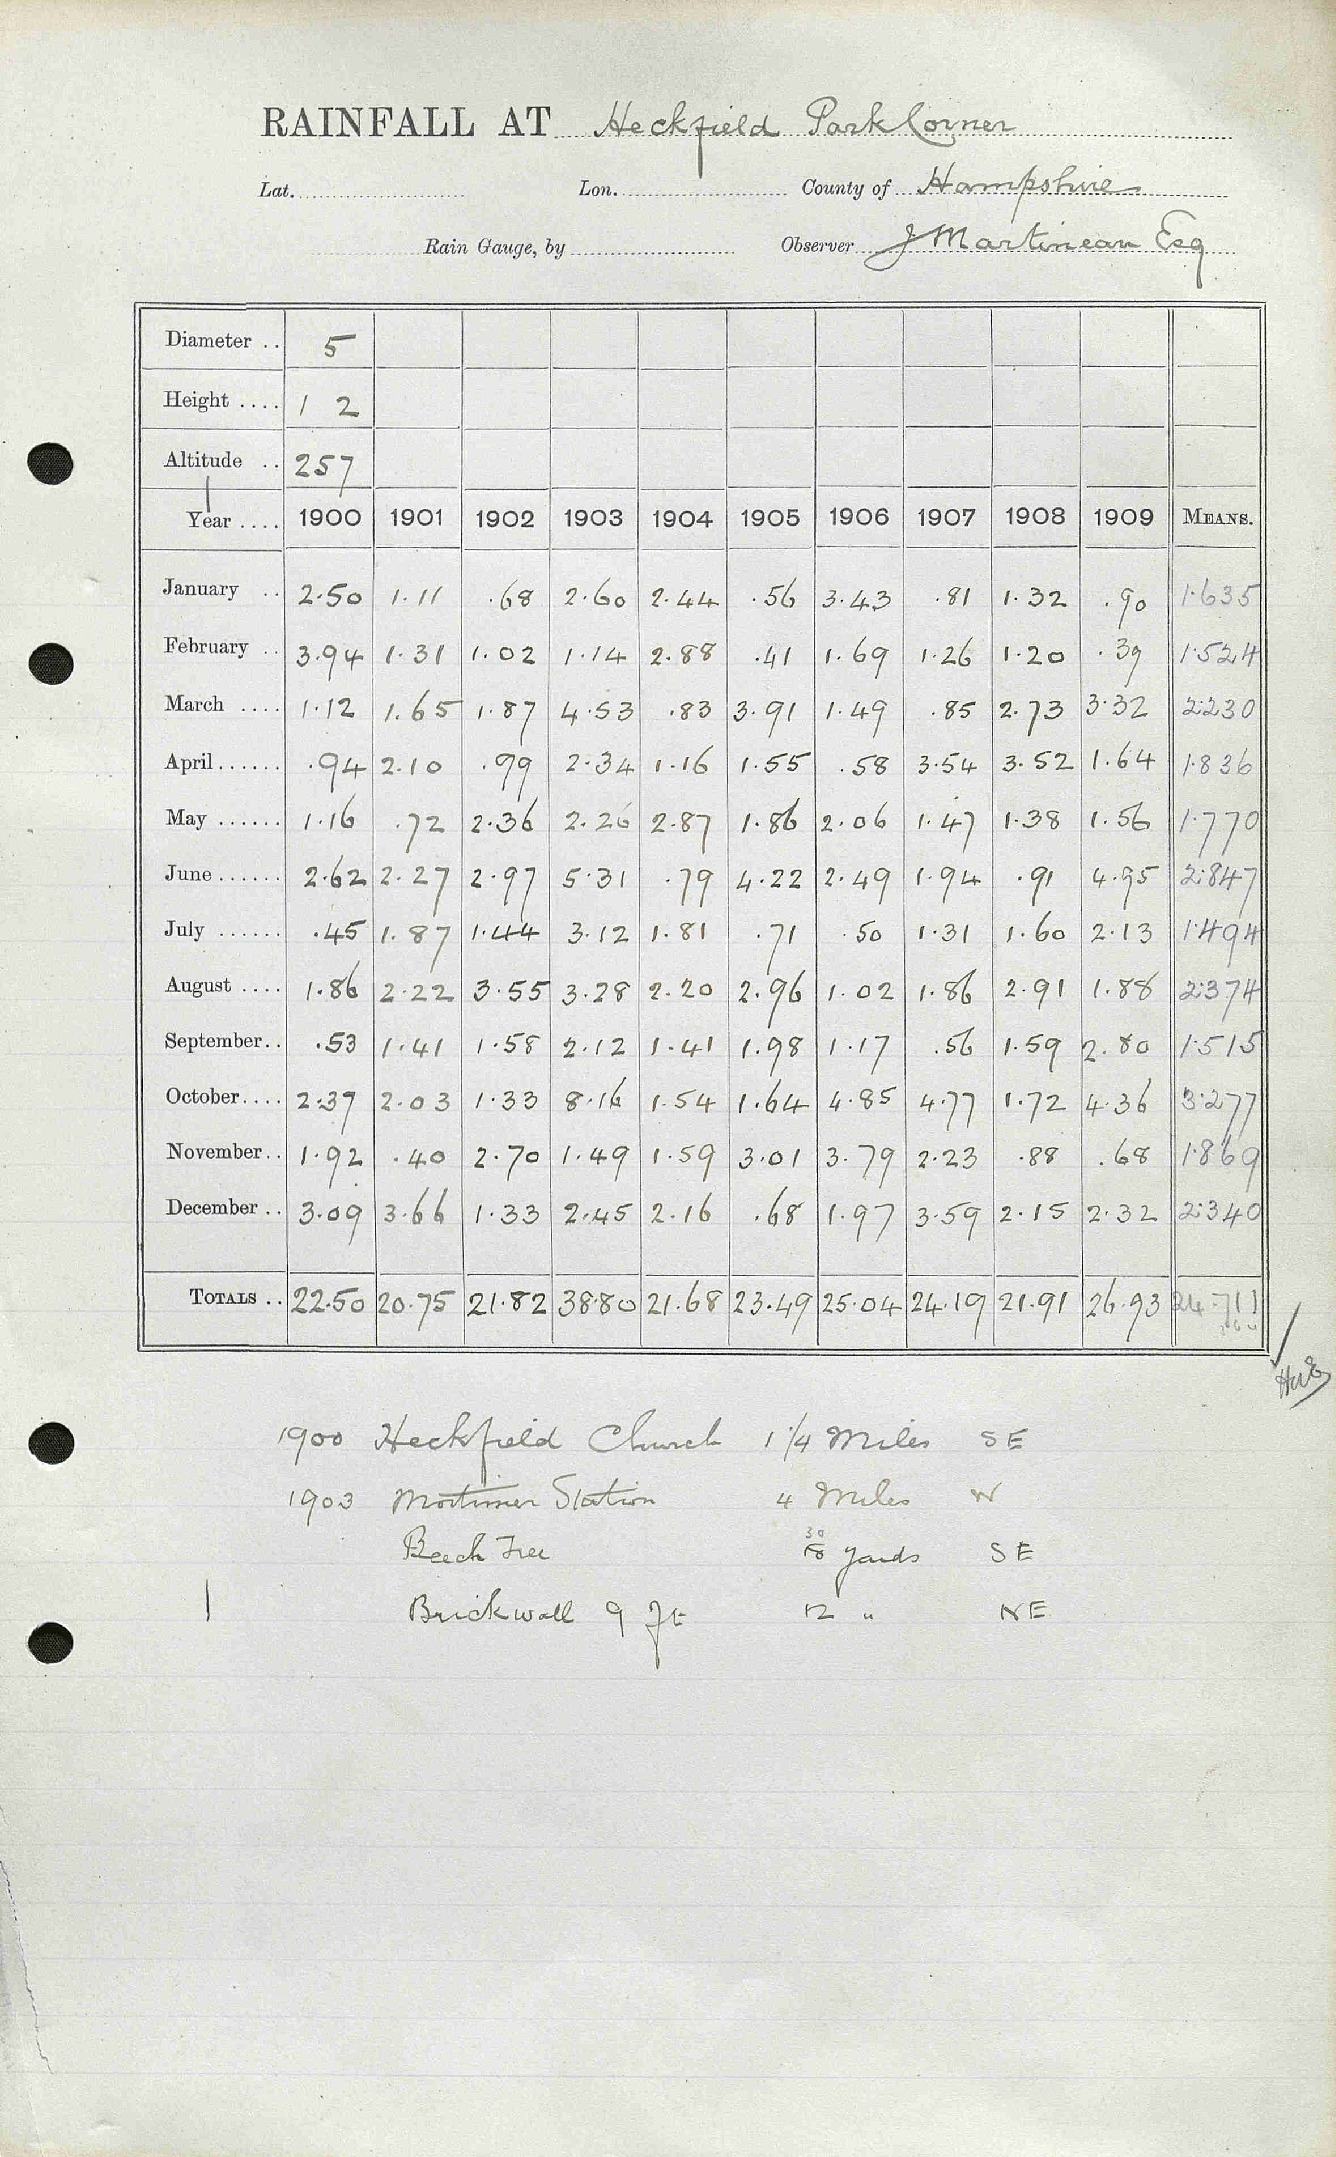 RAINFALL AT Heckfield Park Corner
Lat. Lon. County of Hampshire
Rain Gauge, by Observer J Martineau Esq
Diameter .. 5
Height .... 1 2
Altitude .. 257
Year .... 1900 1901 1902 1903 1904 1905 1906 1907 1908 1909 MEANS.
January .. 2.50 1.11 .68 2.60 2.44 .56 3.43 .81 1.32 .90 1.635
February .. 3.94 1.31 1.02 1.14 2.88 .41 1.69 1.26 1.20 .39 1.524
March .... 1.12 1.65 1.87 4.53 .83 3.91 1.49 .85 2.73 3.32 2.230
April...... .94 2.10 .99 2.34 1.16 1.55 .58 3.54 3.52 1.64 1.836
May ...... 1.16 .72 2.36 2.26 2.87 1.86 2.06 1.47 1.38 1.56 1.770
June...... 2.62 2.27 2.97 5.31 .79 4.22 2.49 1.94 .91 4.95 2.847
July ...... .45 1.87 1.44 3.12 1.81 .71 .50 1.31 1.60 2.13 1.494
August .... 1.86 2.22 3.55 3.28 2.20 2.96 1.02 1.86 2.91 1.88 2.374
September.. .53 1.41 1.58 2.12 1.41 1.98 1.17 .56 1.59 2.80 1.515
October.... 2.37 2.03 1.33 8.16 1.54 1.64 4.85 4.77 1.72 4.36 3.277
November.. 1.92 .40 2.70 1.49 1.59 3.01 3.79 2.23 .88 .68 1.869
December .. 3.09 3.66 1.33 2.45 2.16 .68 1.97 3.59 2.15 2.32 2.340
TOTALS .. 22.50 20.75 21.82 38.80 21.68 23.49 25.04 24.19 21.91 26.93 24.711
1900 Heckfield Church 1 1/4 Miles SE
1903 Mortimer Station 4 Miles W
Beech Tree 30 yards SE
Brickwall 9 Ft 12 " NE